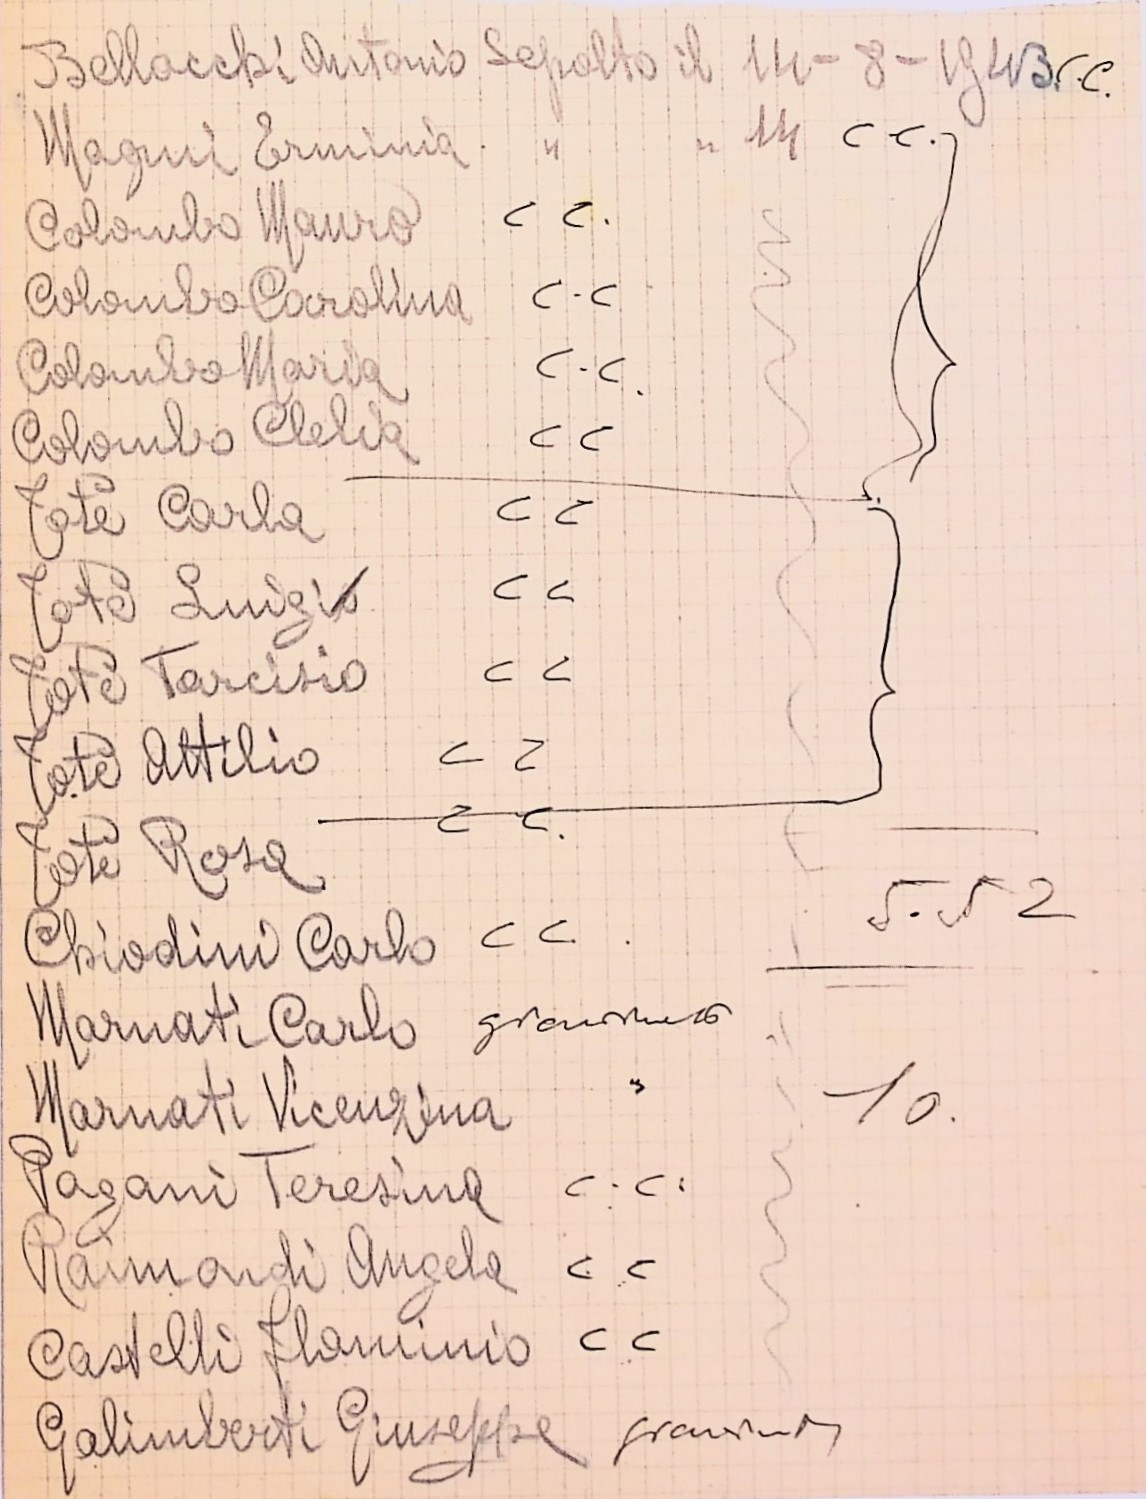 Bellocchi Antonio Sepolto il 14-8-1943 c.c.
Magni Erminia " " 14 c c.
Colombo Mauro c c.
Colombo Carolina c.c
Colombo Maria c.c.
Colombo Clelia c c
Totè Carla c c
Totè Luigi c c
Totè Tarcisio c c
Totè Attilio c c
Totè Rosa c c.
5.52
Chiodini Carlo c c.
Marnati Carlo
Marnati Vicenzina "
10.
Pagani Teresina c.c.
Raimondi Angela c c
Castelli Flaminio c c
Galimberti Giuseppe